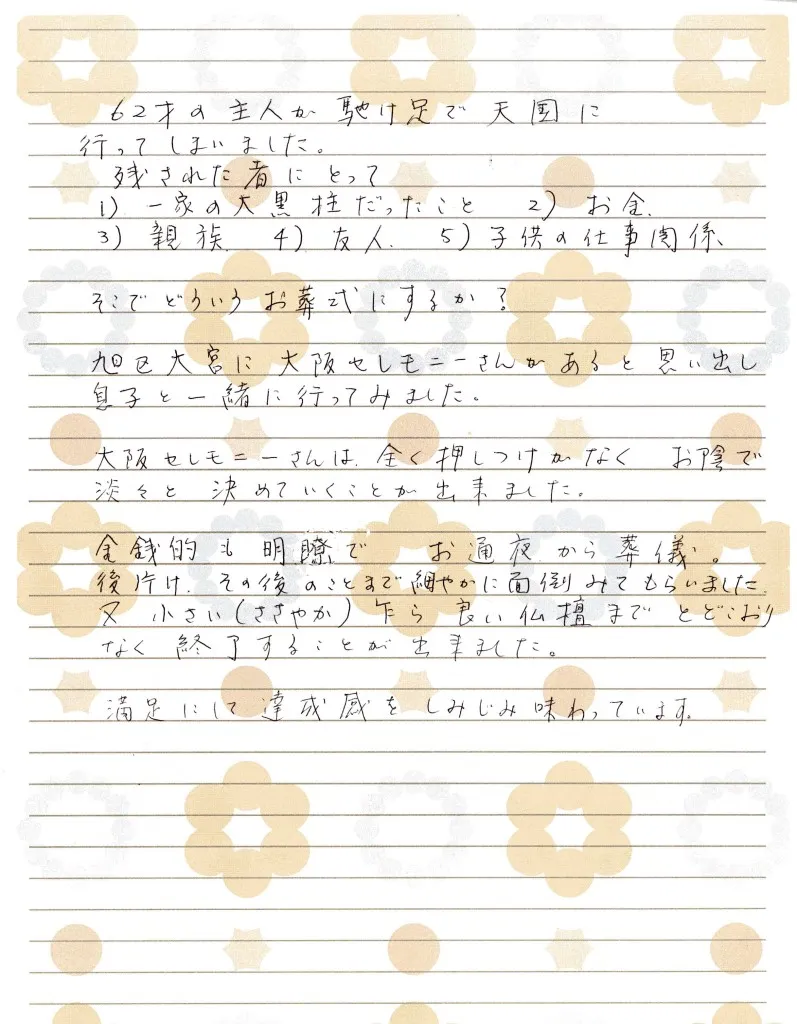 62才の主人が馳け足で天国に
行ってしまいました。
残された者にとって
1) 一家の大黒柱だったこと 2) お金、
3) 親族、 4) 友人、 5) 子供の仕事関係、
そこでどういうお葬式にするか?
旭区大宮に大阪セレモニーさんがあると思い出し
息子と一緒に行ってみました。
大阪セレモニーさんは、全く押しつけがなく お陰で
淡々と決めていくことが出来ました。
金銭的も明瞭で お通夜から葬儀。
後片け、その後のことまで細やかに面倒みてもらいました、
又 小さい(ささやか)乍ら良い仏壇までとどこおり
なく終了することが出来ました。
満足にして達成感をしみじみ味わっています。